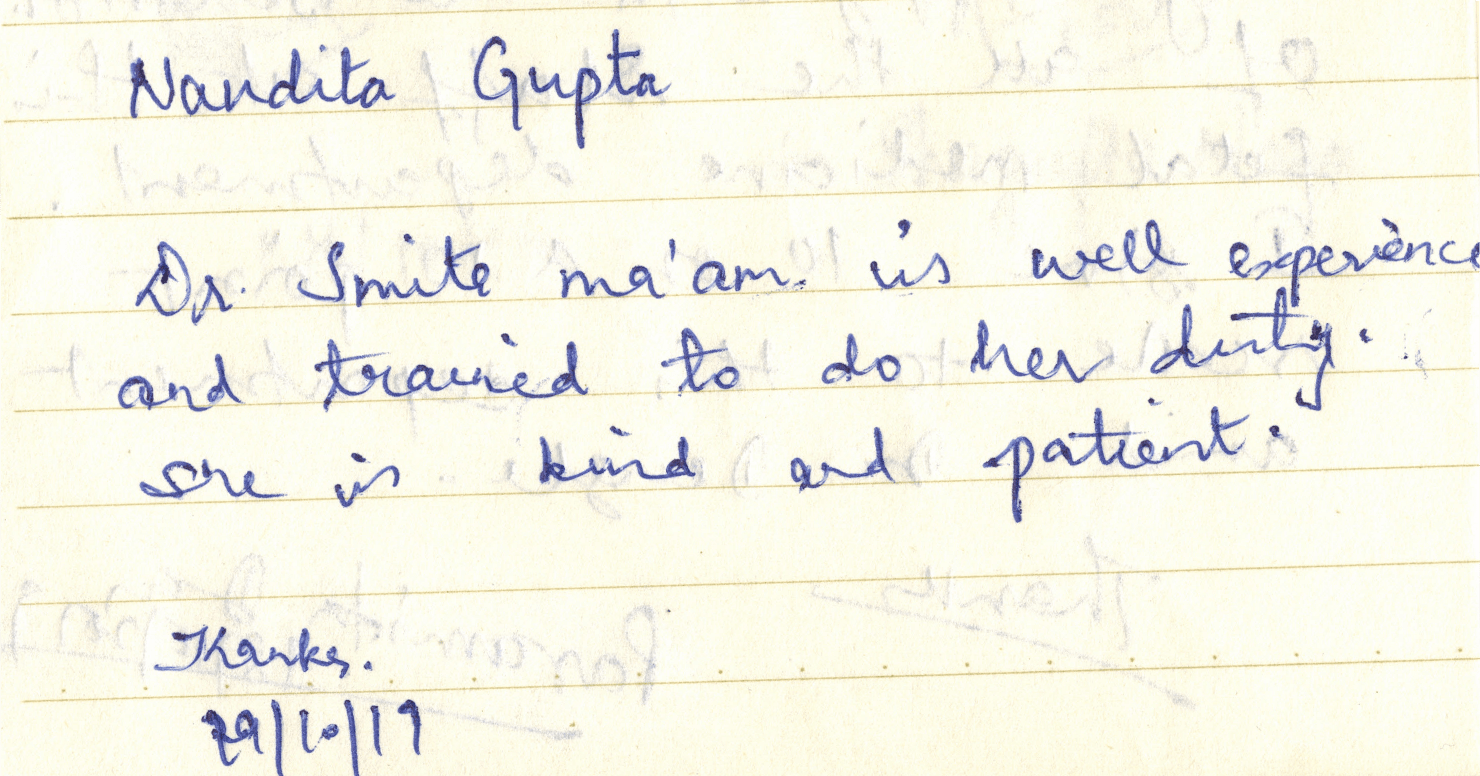 Nandita Gupta
Dr. Smita ma'am. is well experience
and trained to do her duty.
She is kind and patient.
Thanks.
29/10/19